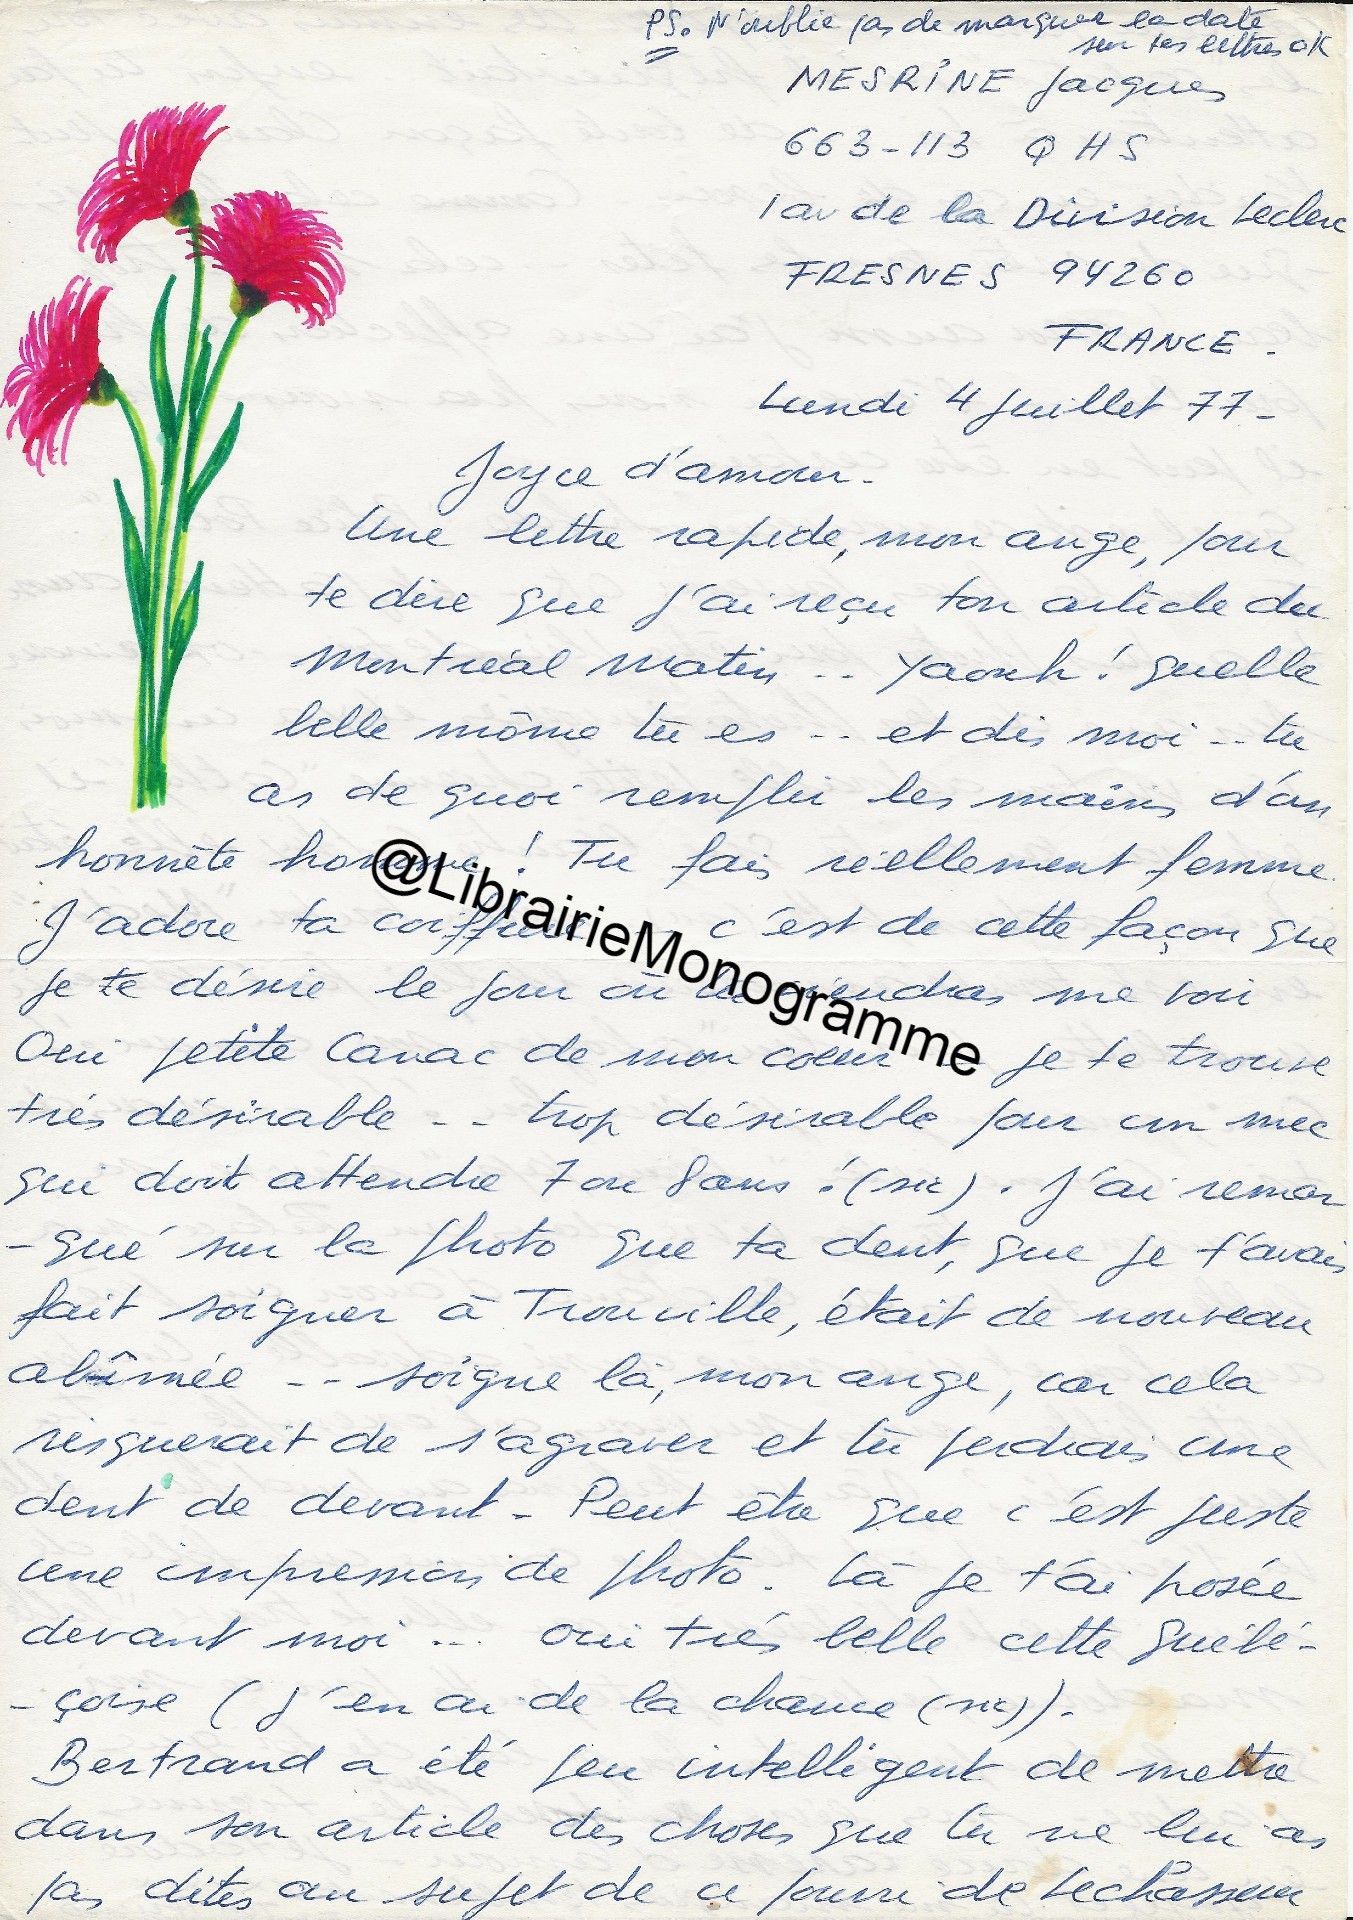 PS. N'oublie pas de marquer la date
sur tes lettres OK
MESRINE Jacques
663-113 QHS
1 av de la Division Leclerc
FRESNES 94260
FRANCE.
Lundi 4 Juillet 77-
Joyce d'amour.
Une lettre rapide, mon ange, pour
te dire que j'ai reçu ton article du
Montréal Matin .. Yaouh! quelle
belle môme tu es .. et dis moi .. tu
as de quoi remplir les mains d'un
honnête homme! Tu fais réellement femme.
J'adore ta coiffure .. c'est de cette façon que
je te désire le jour où tu viendras me voir
Oui petite Canac de mon coeur .. je te trouve
très désirable .. trop désirable pour un mec
qui doit attendre 7 ou 8 ans! (sic). J'ai remar
-qué sur la photo que ta dent, que je t'avais
fait soigner à Trouville, était de nouveau
abîmée .. soigne là, mon ange, car cela
risquerait de s'agraver et tu perdrais une
dent de devant. Peut être que c'est juste
une impression de photo. Là je t'ai posée
devant moi ... oui très belle cette québé-
-çoise (j'en ai de la chance (sic)).
Bertrand a été peu intelligent de mettre
dans son article des choses que tu ne lui as
pas dites au sujet de ce pourri de Lechasseur
@LibrairieMonogramme